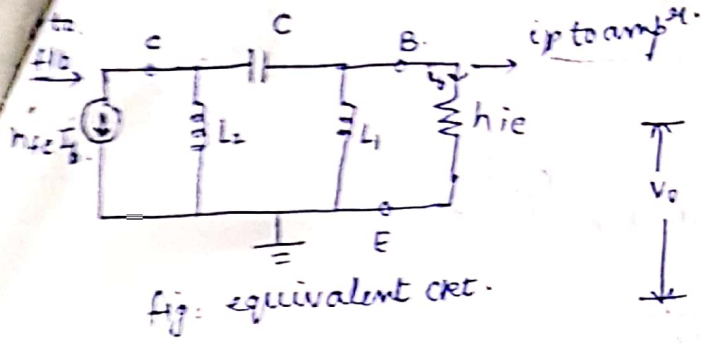 C
C
B.
i/p to ampr.
hfe Ib.
L2
L1
hie
Vo
E
fig: equivalent ckt.